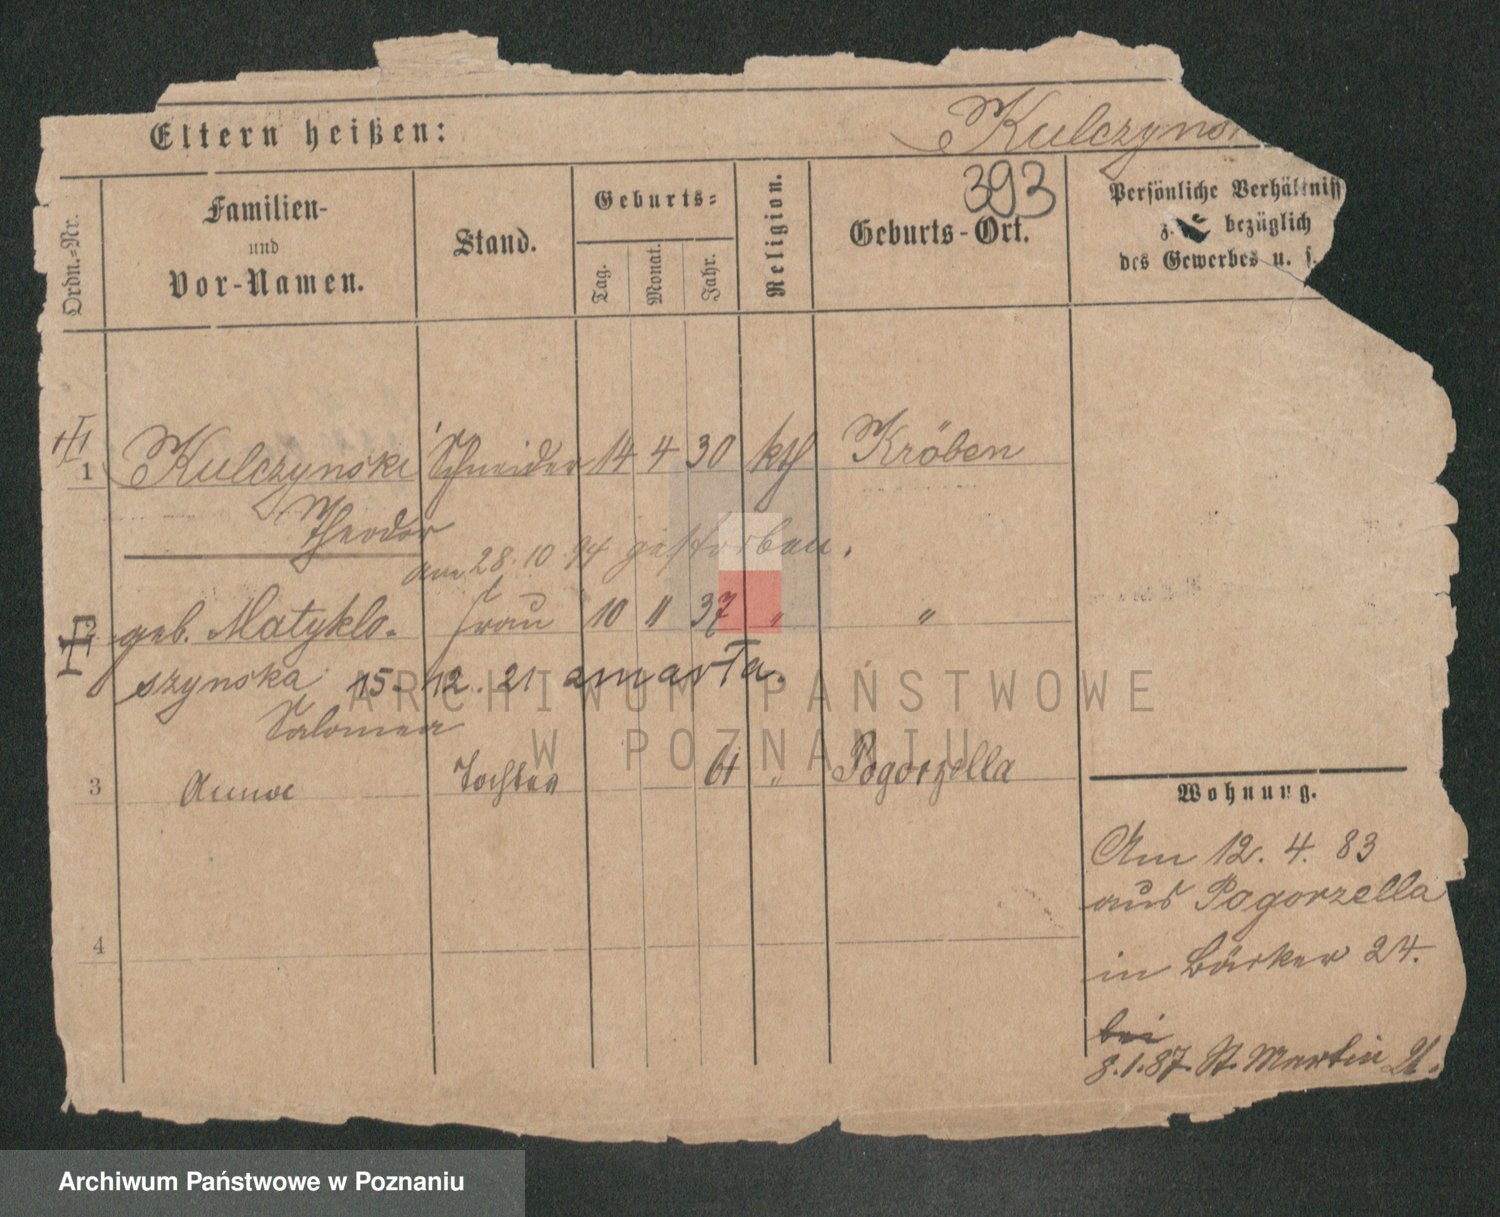 Eltern heißen:
Kulczynski
393
Ordn.-Nr.
Familien-
und
Vor-Namen.
Stand.
Geburts-
Tag.
Monat.
Jahr.
Religion.
Geburts-Ort.
Persönliche Verhältniss
z. bezüglich
des Gewerbes u. s.
1 Kulczynski Schneider 14 4 30 kth Kröben
Theodor
am 28.10 94 gestorben.
geb. Matyklo- Frau 10 11 37 " "
szynska 15. 12. 21 zmarła.
Salomea
3 Anna Tochter 61 " Pogorzella
4
Wohnung.
Am 12. 4. 83
aus Pogorzella
in Bäcker 24.
bei
8.1.87. St. Martin 21.
ARCHIWUM PAŃSTWOWE
W POZNANIU
Archiwum Państwowe w Poznaniu